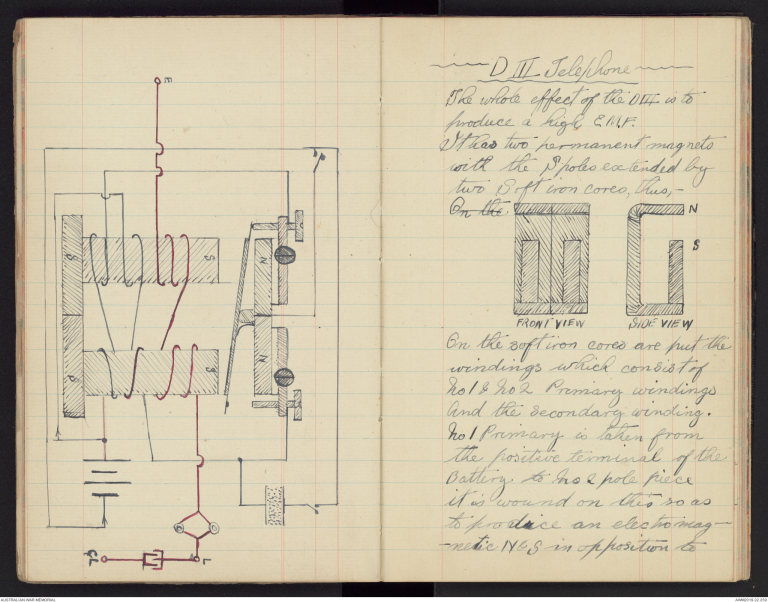 E
S
S
N
S
S
N
L
D III Telephone
The whole effect of the D III is to
produce a high E.M.F.
It has two permanent magnets
with the S poles extended by
two Soft iron cores, thus,-
On the
N
S
FRONT VIEW
SIDE VIEW
On the soft iron cores are put the
windings which consist of
No 1 & No 2 Primary windings
and the secondary winding.
No 1 Primary is taken from
the positive terminal of the
Battery to No 2 pole piece
it is wound on this so as
to produce an electromag-
-netic N & S in opposition to
AUSTRALIAN WAR MEMORIAL